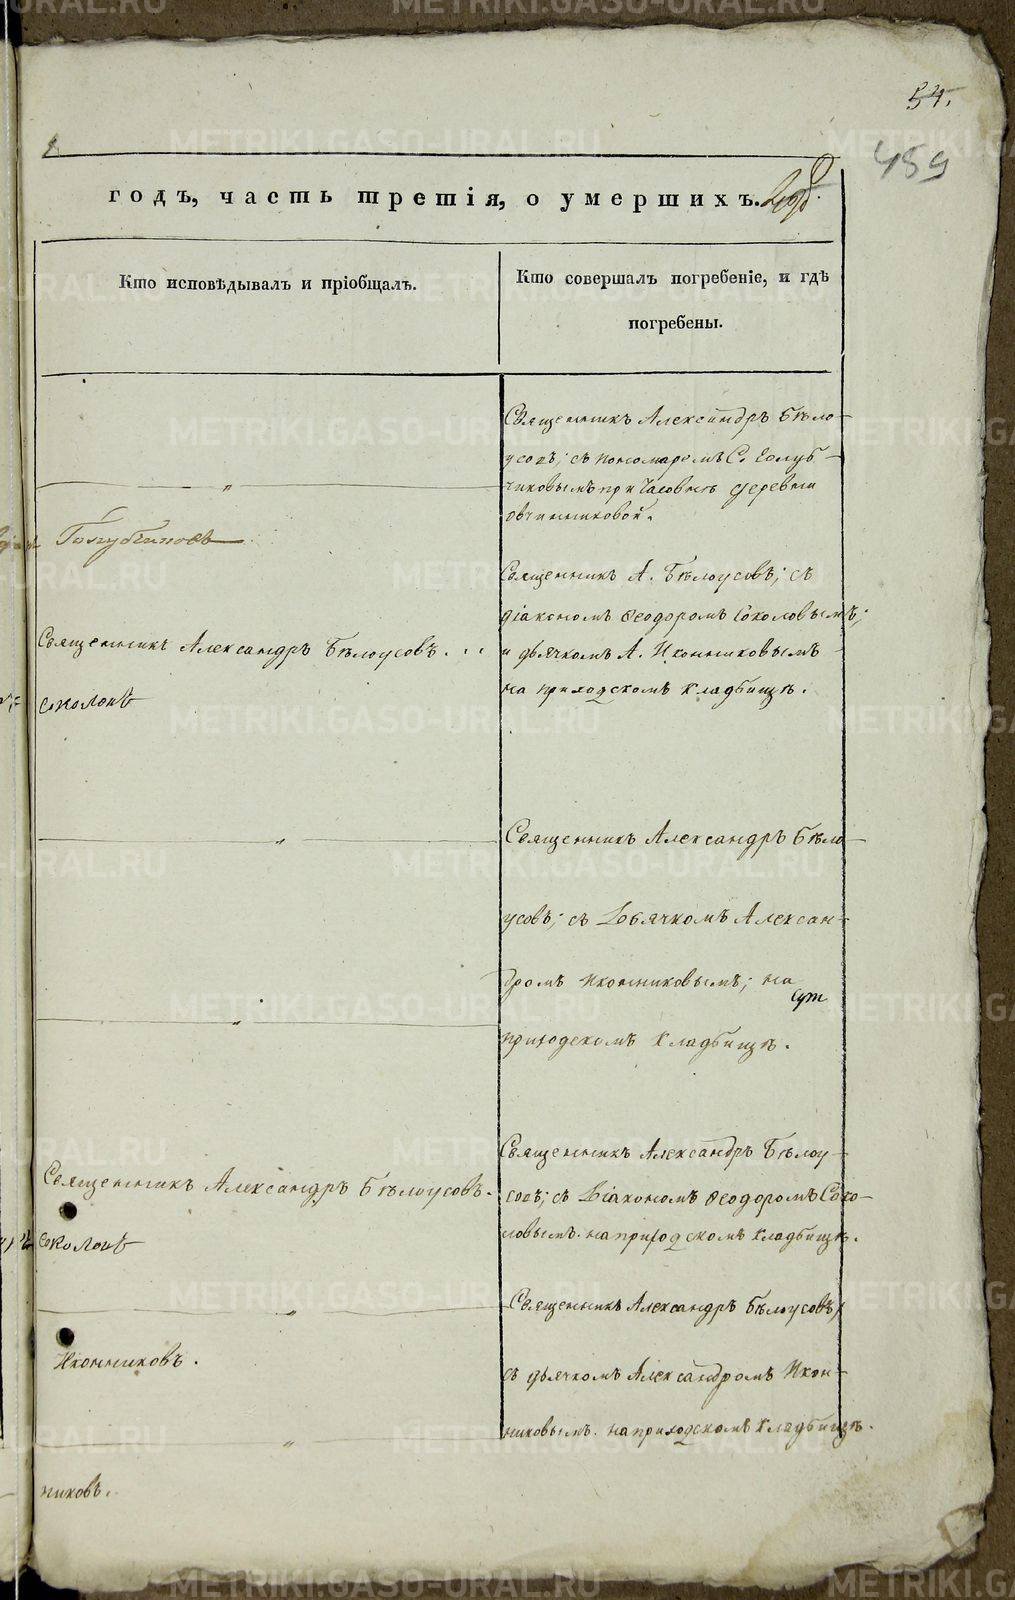 54.
459
годъ, часть третія, о умершихъ.
Кто исповѣдывалъ и пріобщалъ.
Кто совершалъ погребеніе, и гдѣ
погребены.
Священникъ Александръ Бѣло-
усовъ; съ пономаремъ С. Голуб-
чиковымъ при Часовнѣ деревни
Овчинниковой.
Священникъ А. Бѣлоусовъ; съ
діакономъ Ѳеодоромъ Соколовымъ;
и дьячкомъ А. Иконниковымъ
на приходскомъ кладбищѣ.
Священникъ Александръ Бѣлоусовъ...
Соколовъ
Священникъ Александръ Бѣло-
усовъ; съ Дьячкомъ Алексан-
дромъ Иконниковымъ; на
приходскомъ кладбищѣ.
Священникъ Александръ Бѣлоу-
совъ; съ Діакономъ Ѳеодоромъ Соко-
ловымъ. на приходскомъ кладбищѣ.
Священникъ Александръ Бѣлоусовъ.
Соколовъ
Священникъ Александръ Бѣлоусовъ,
съ дьячкомъ Александромъ Икон-
никовымъ. на приходскомъ кладбищѣ.
Иконниковъ.
никовъ.
METRIKI.GASO-URAL.RU